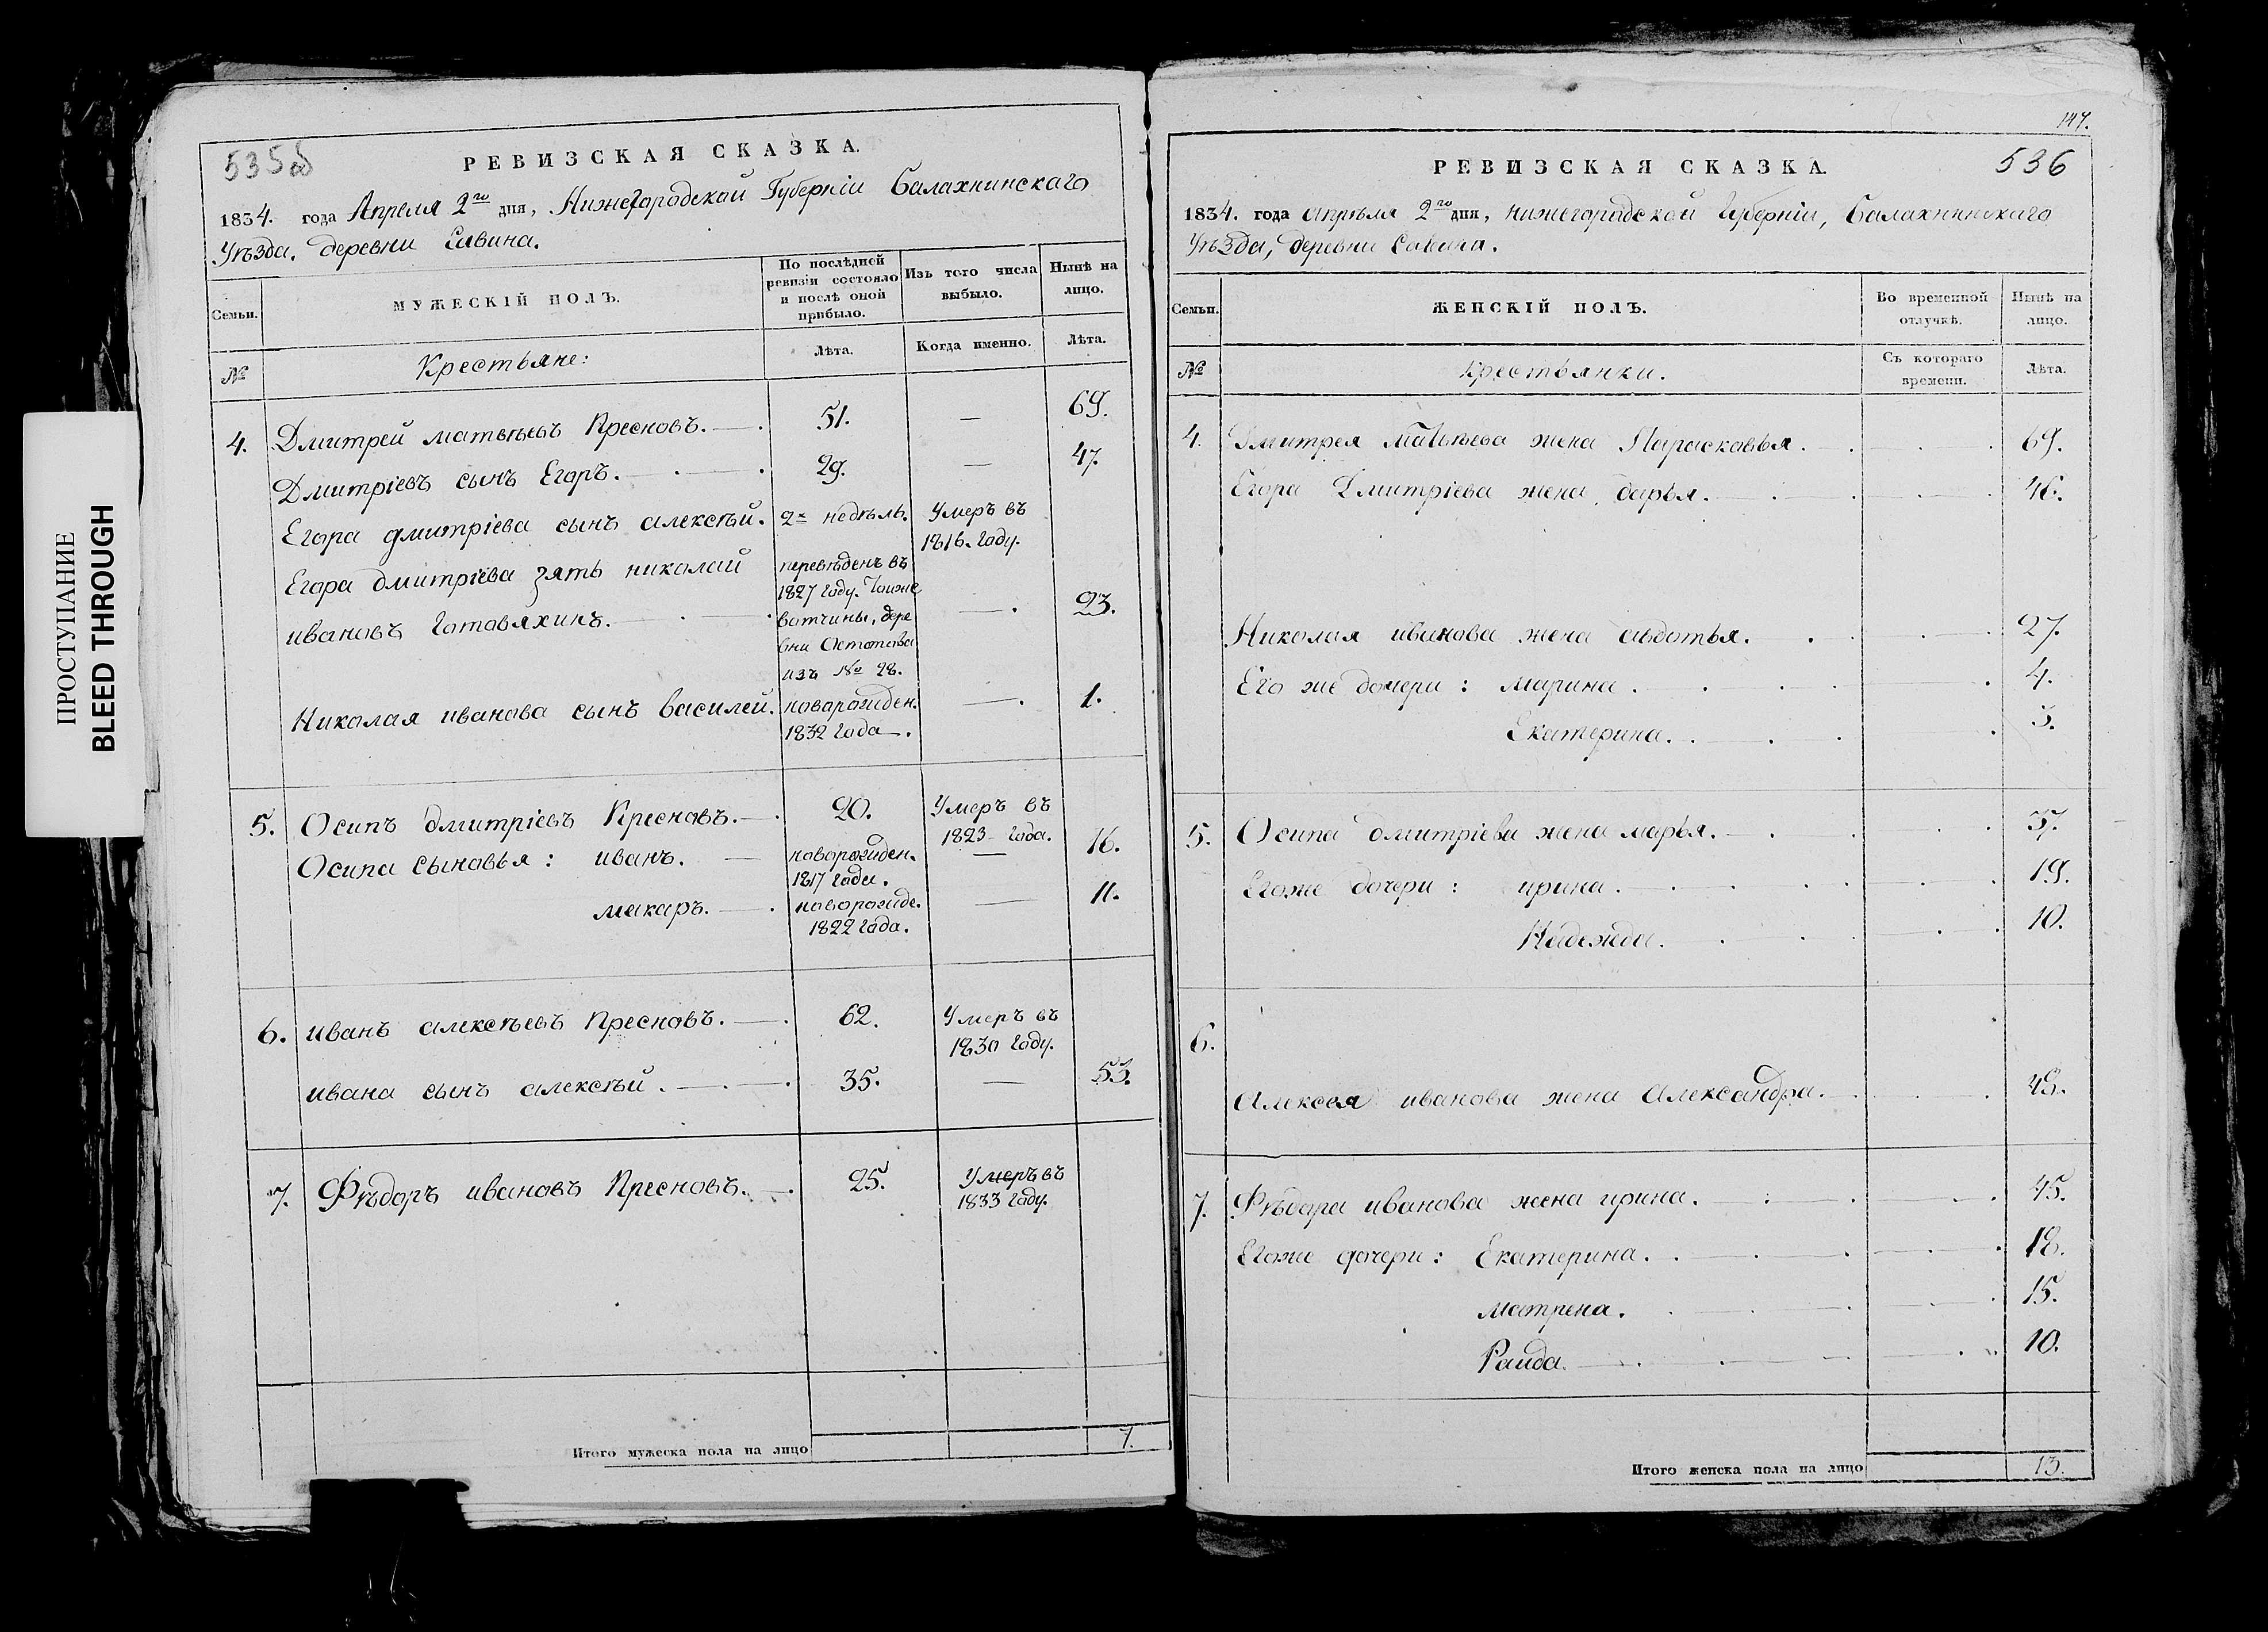 ПРОСТУПАНИЕ
BLEED THROUGH
535об
РЕВИЗСКАЯ СКАЗКА.
1834. года Апреля 2го дня, Нижегородской Губерніи Балахнинскаго
Уѣзда. деревни Савина.
Семьи.
МУЖЕСКІЙ ПОЛЪ.
По послѣдней ревизіи состояло и послѣ оной прибыло.
Изъ того числа выбыло.
Нынѣ на лицо.
№
Крестьяне:
Лѣта.
Когда именно.
Лѣта.
4. Дмитрей матвѣевъ Пресновъ. 51. — 69.
Дмитріевъ сынъ Егоръ. 29. — 47.
Егора дмитріева сынъ алексѣй. 2х недѣль. Умеръ въ
1816. году.
Егора дмитріева зять николай
ивановъ Готовяхинъ. — 23.
перевѣденъ въ
1827 году. Тоиже
вотчины, дере
вни
изъ № 28.
Николая иванова сынъ василей. новорожден. — 1.
1832 года.
5. Осипъ дмитріевъ Пресновъ. 20. Умеръ въ
1823 года.
Осипа сыновья: иванъ. новорожден. — 16.
1817 года.
макаръ. новорожде. — 11.
1822 года.
6. иванъ алексѣевъ Пресновъ. 62. Умеръ въ
1830 году.
ивана сынъ алексѣй. 35. — 53.
7. Фѣдоръ ивановъ Пресновъ. 25. Умеръ въ
1833 году.
Итого мужеска пола на лицо 7.
147.
536
РЕВИЗСКАЯ СКАЗКА.
1834. года апрѣля 2го дня, нижегородской Губерніи, Балахнинскаго
Уѣзда, деревни Савина.
Семьи.
ЖЕНСКІЙ ПОЛЪ.
Во временной отлучкѣ.
Нынѣ на лицо.
№
Крестьянки.
Съ котораго времени.
Лѣта.
4. Дмитрея матвѣева жена Парасковья. 69.
Егора Дмитріева жена дарья. 46.
Николая иванова жена авдотья. 27.
Его же дочери: марина. 4.
Екатерина. 3.
5. Осипа дмитріева жена марья. 37.
Егоже дочери: ирина. 19.
Надежда. 10.
6.
Алексея иванова жена Александра. 48.
7. Фѣдора иванова жена ирина. 45.
Егоже дочери: Екатерина. 18.
матрена. 15.
Раида. 10.
Итого женска пола на лицо 13.